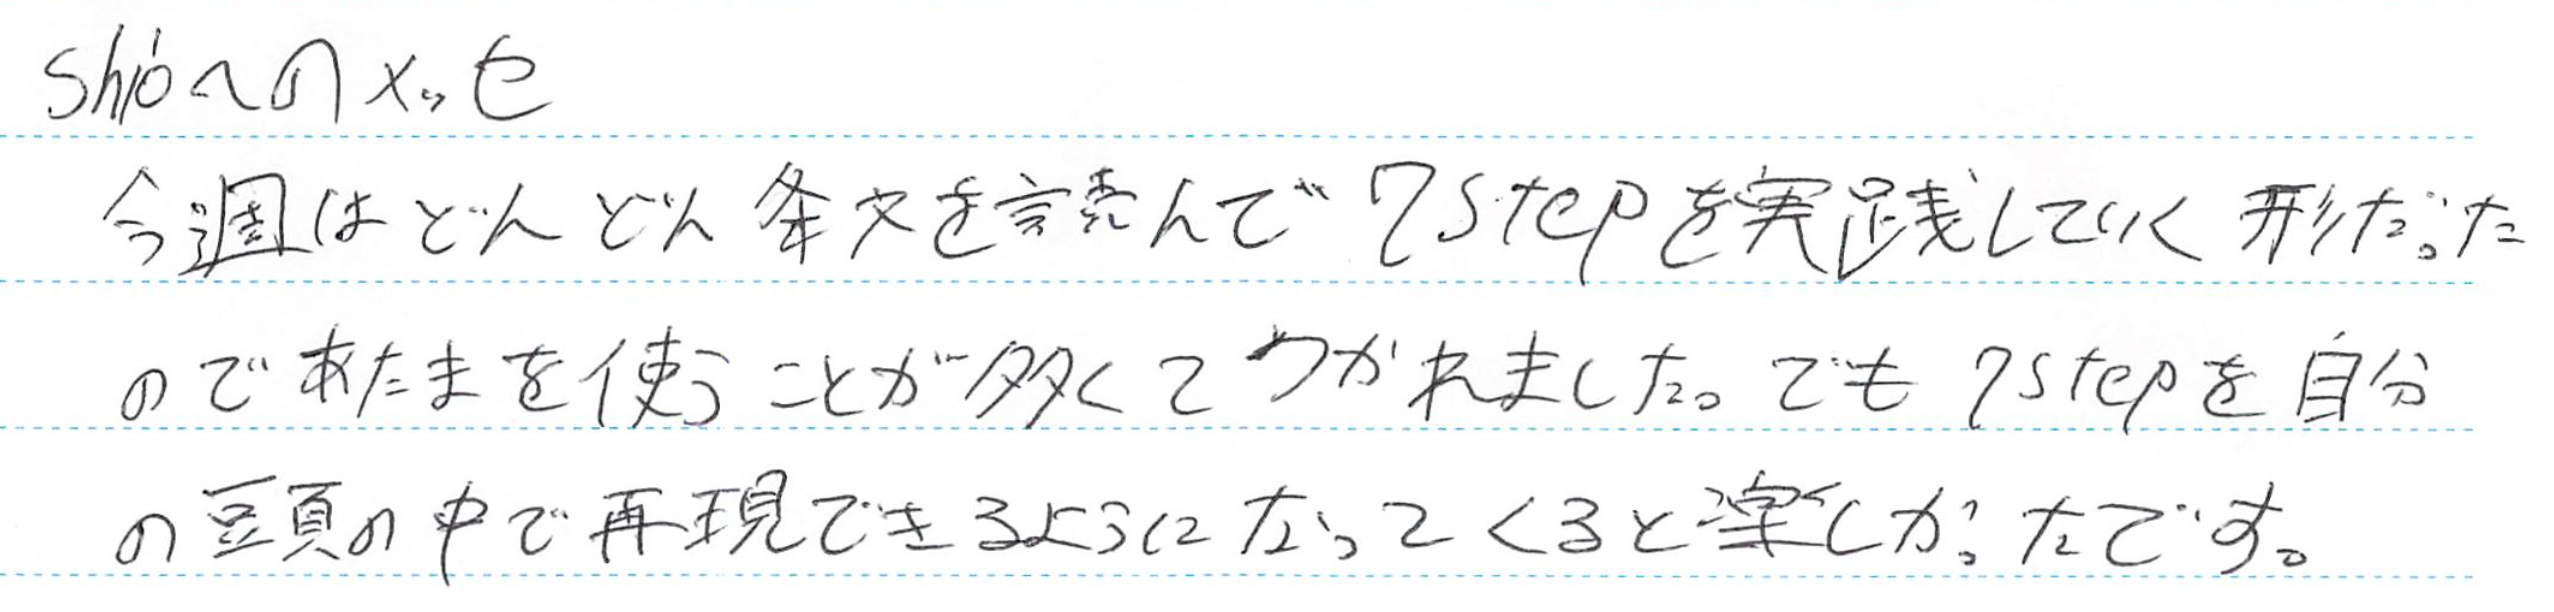 shioへのメッセ
今週はどんどん条文を読んで7stepを実践していく形だった
のであたまを使うことが多くてつかれました。でも7stepを自分
の頭の中で再現できるようになってくると楽しかったです。